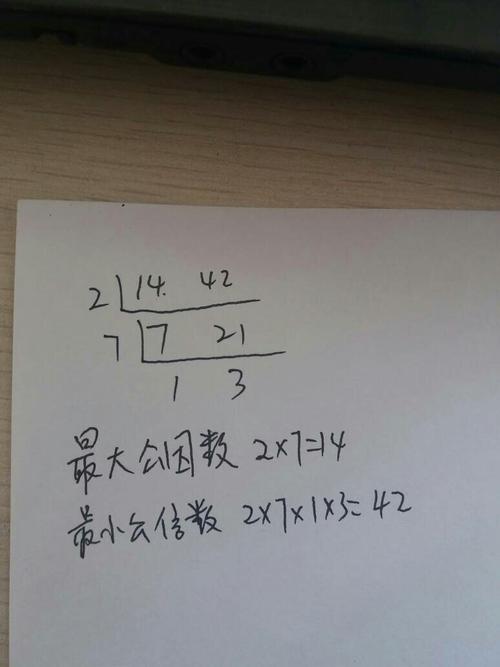 2 14 42
7 7 21
1 3
最大公因数 2×7=14
最小公倍数 2×7×1×3=42